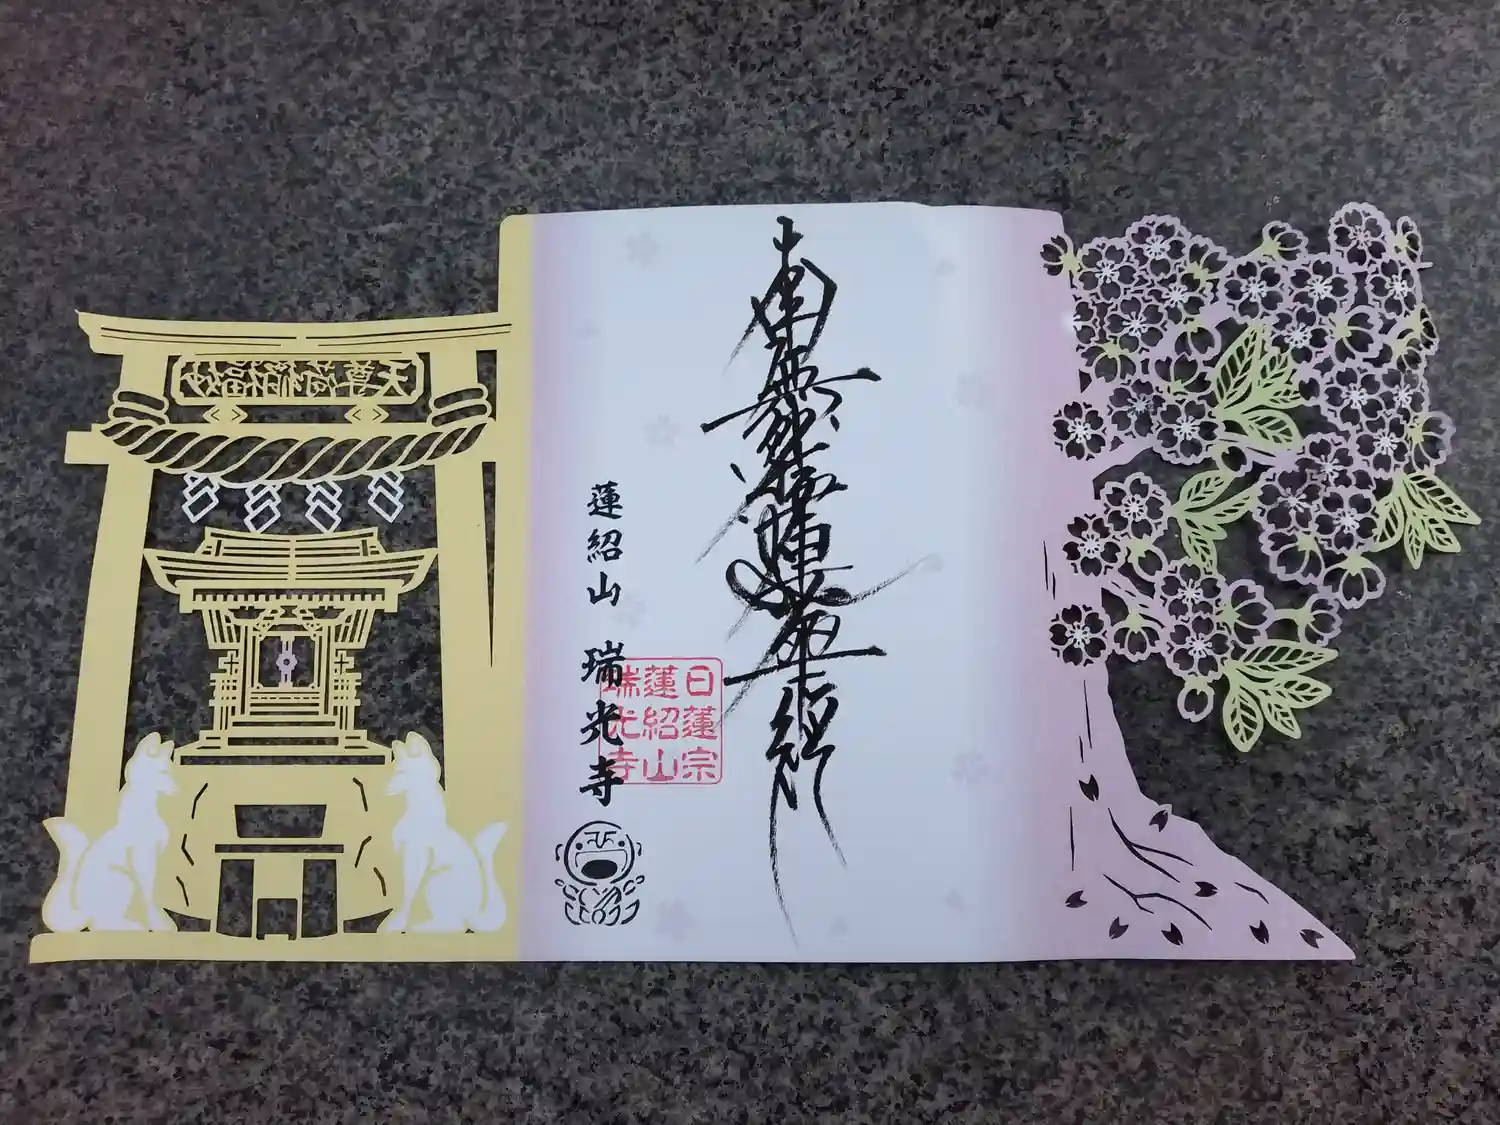 南無妙法蓮華經
蓮紹山 瑞光寺
日蓮宗
蓮紹山
瑞光寺
妙福稲荷尊天